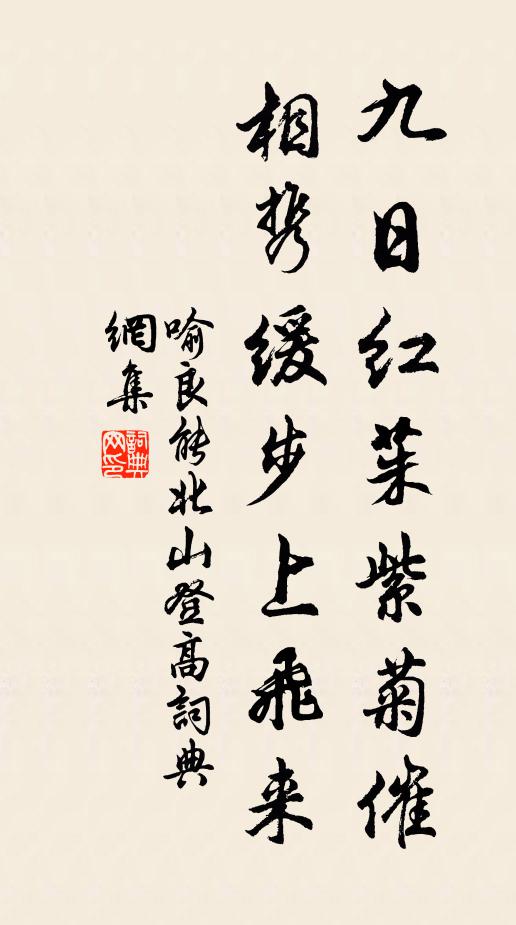 九日红茱紫菊催
相携緩步上飛来
喻良能北山登高詞典
網集
詞典
网印